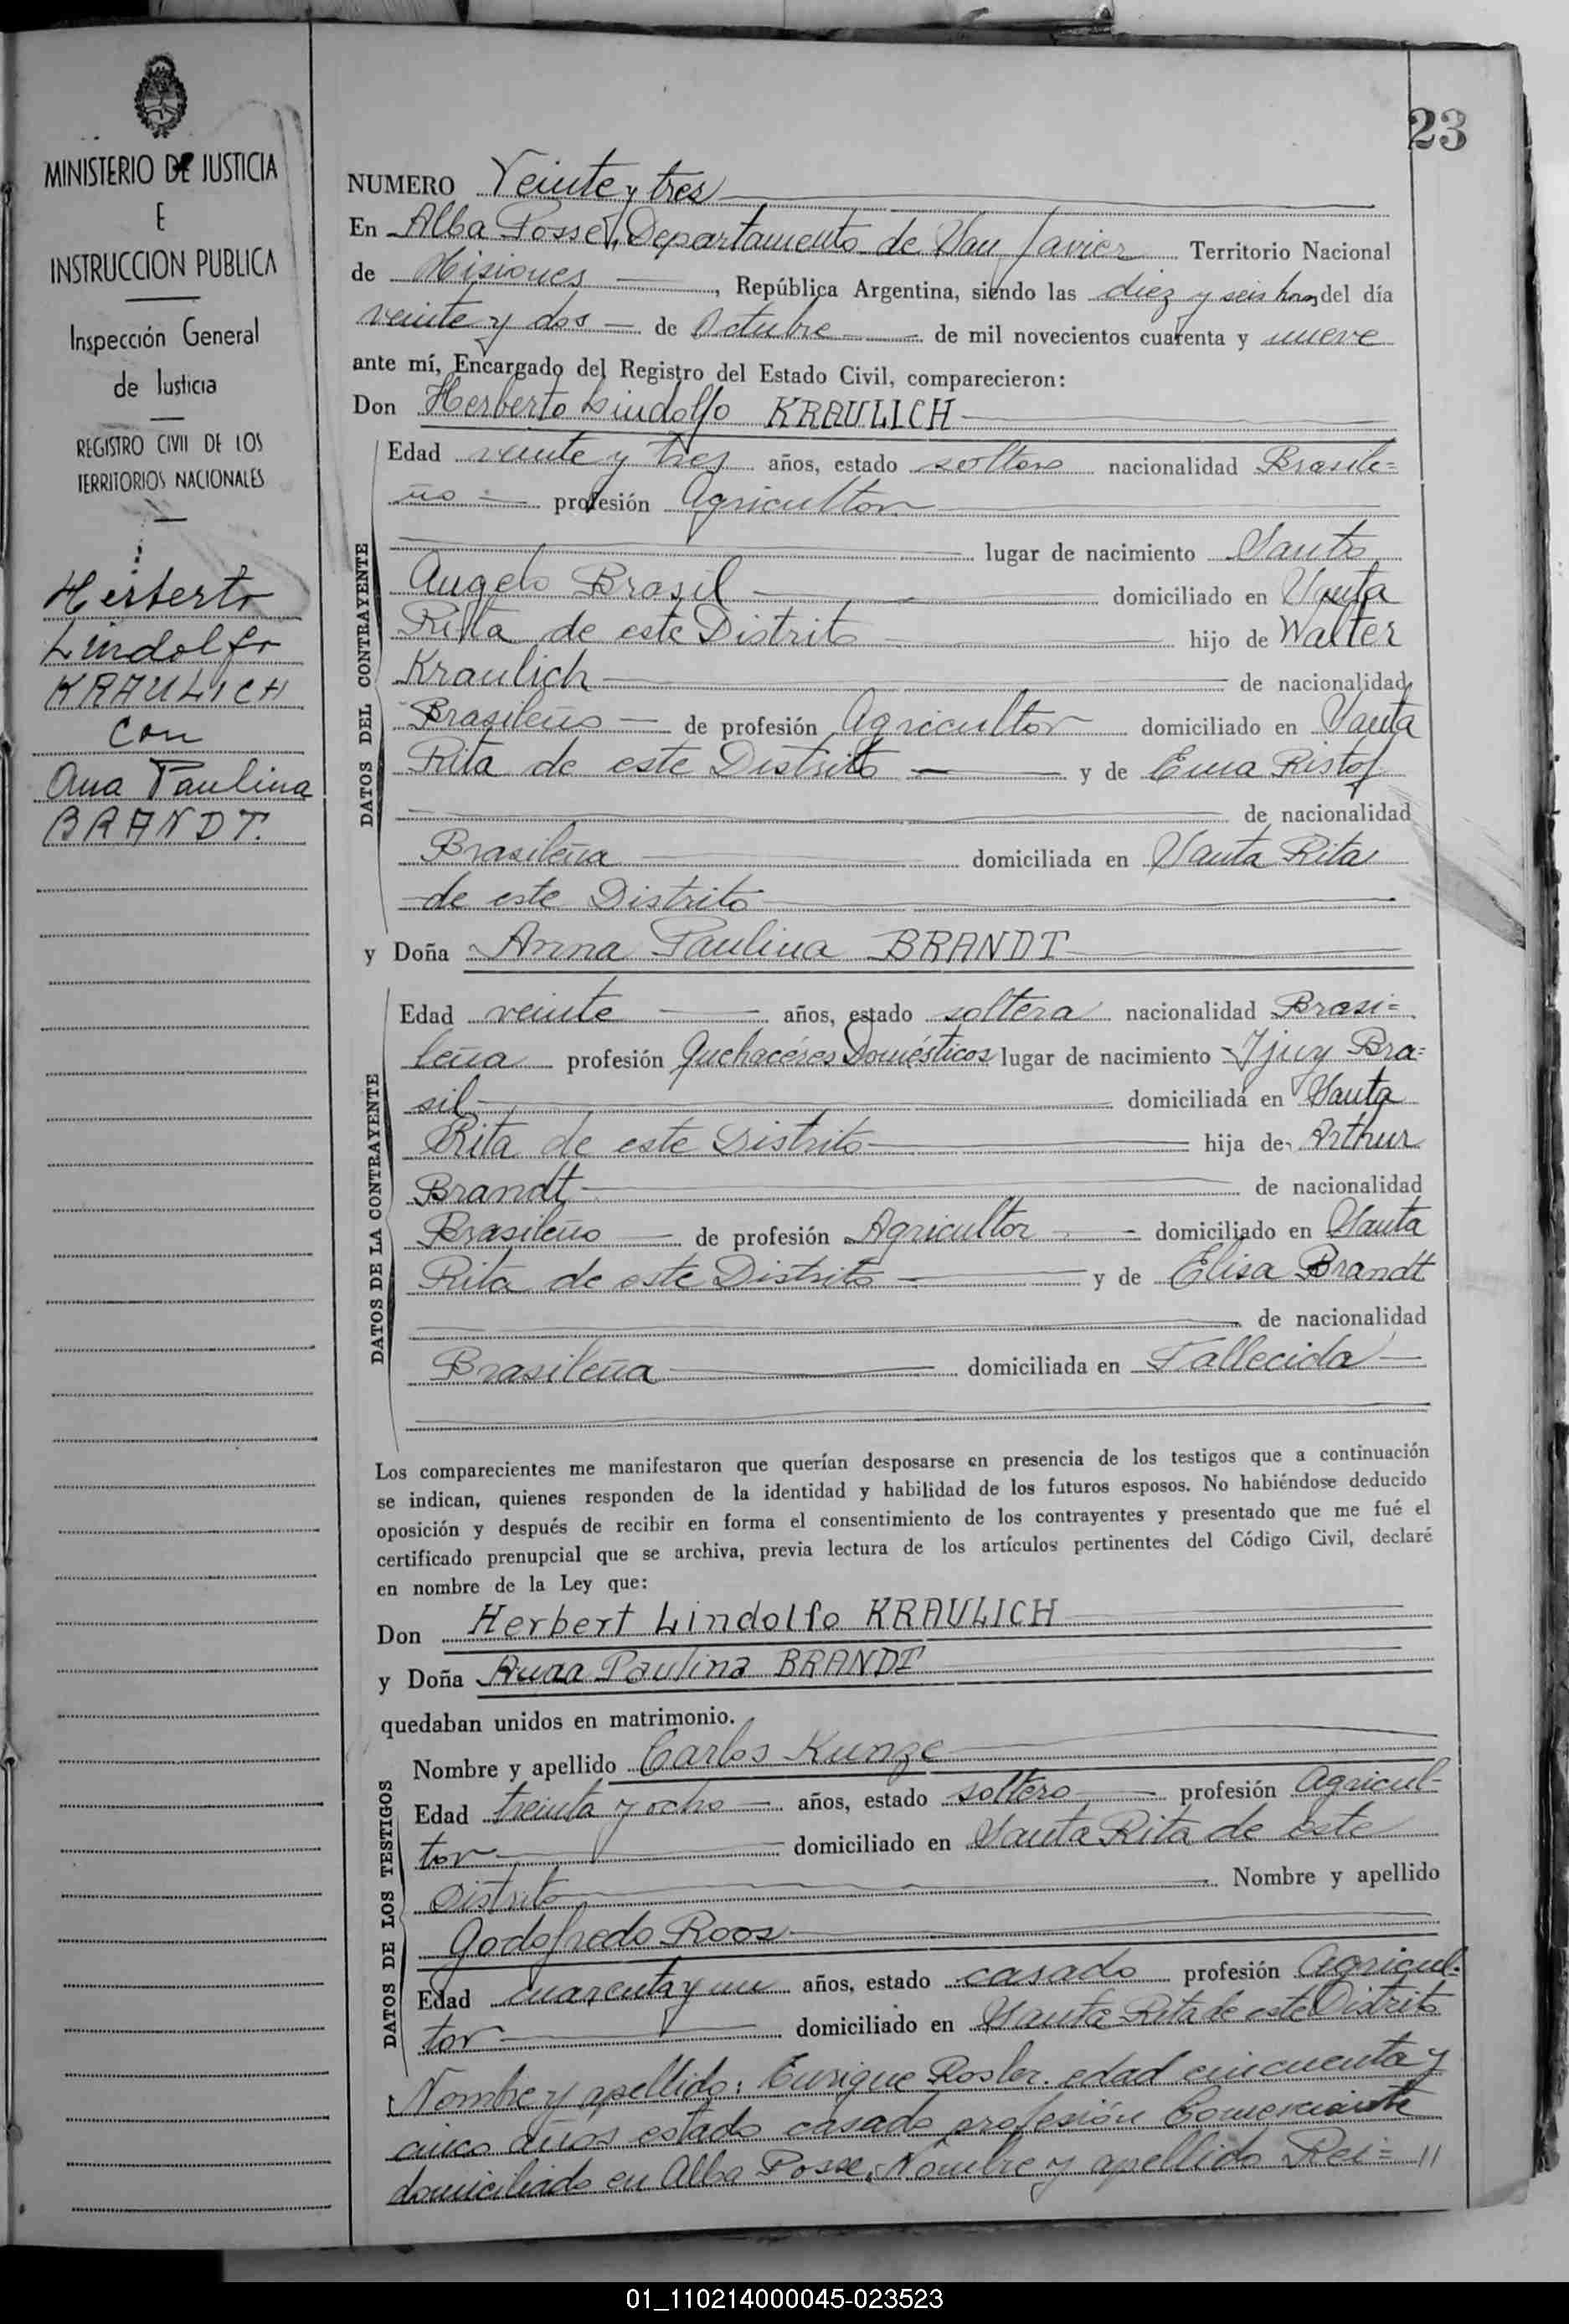 23
MINISTERIO DE JUSTICIA
E
INSTRUCCION PUBLICA
Inspección General
de Justicia
REGISTRO CIVIL DE LOS
TERRITORIOS NACIONALES
Herberto
Lindolfo
KRAULICH
con
Ana Paulina
BRANDT.
NUMERO Veinte y tres
En Alba Posse, Departamento de San Javier Territorio Nacional
de Misiones , República Argentina, siendo las diez y seis horas del día
veinte y dos de Octubre de mil novecientos cuarenta y nueve
ante mí, Encargado del Registro del Estado Civil, comparecieron:
Don Herberto Lindolfo KRAULICH
DATOS DEL CONTRAYENTE
Edad veinte y tres años, estado soltero nacionalidad Brasile=
ño profesión Agricultor
lugar de nacimiento Santo
Angelo Brasil domiciliado en Santa
Rita de este Distrito hijo de Walter
Kraulich de nacionalidad
Brasileño de profesión Agricultor domiciliado en Santa
Rita de este Distrito y de Ema Ristof
de nacionalidad
Brasileña domiciliada en Santa Rita
de este Distrito
y Doña Anna Paulina BRANDT
DATOS DE LA CONTRAYENTE
Edad veinte años, estado soltera nacionalidad Brasi=
leña profesión Quehacéres Domésticos lugar de nacimiento Ijuy Bra=
sil domiciliada en Santa
Rita de este Distrito hija de Arthur
Brandt de nacionalidad
Brasileño de profesión Agricultor domiciliado en Santa
Rita de este Distrito y de Elisa Brandt
de nacionalidad
Brasileña domiciliada en Fallecida
Los comparecientes me manifestaron que querían desposarse en presencia de los testigos que a continuación
se indican, quienes responden de la identidad y habilidad de los futuros esposos. No habiéndose deducido
oposición y después de recibir en forma el consentimiento de los contrayentes y presentado que me fué el
certificado prenupcial que se archiva, previa lectura de los artículos pertinentes del Código Civil, declaré
en nombre de la Ley que:
Don Herbert Lindolfo KRAULICH
y Doña Anna Paulina BRANDT
quedaban unidos en matrimonio.
DATOS DE LOS TESTIGOS
Nombre y apellido Carlos Kunze
Edad treinta y ocho años, estado soltero profesión Agricul-
tor domiciliado en Santa Rita de este
Distrito Nombre y apellido
Godofredo Roos
Edad cuarenta y un años, estado casado profesión Agricul-
tor domiciliado en Santa Rita de este Distrito
Nombre y apellido: Enrique Rosler. edad cincuenta y
cinco años estado casado profesión Comerciante
domiciliado en Alba Posse, Nombre y apellido Rei= //
01_110214000045-023523